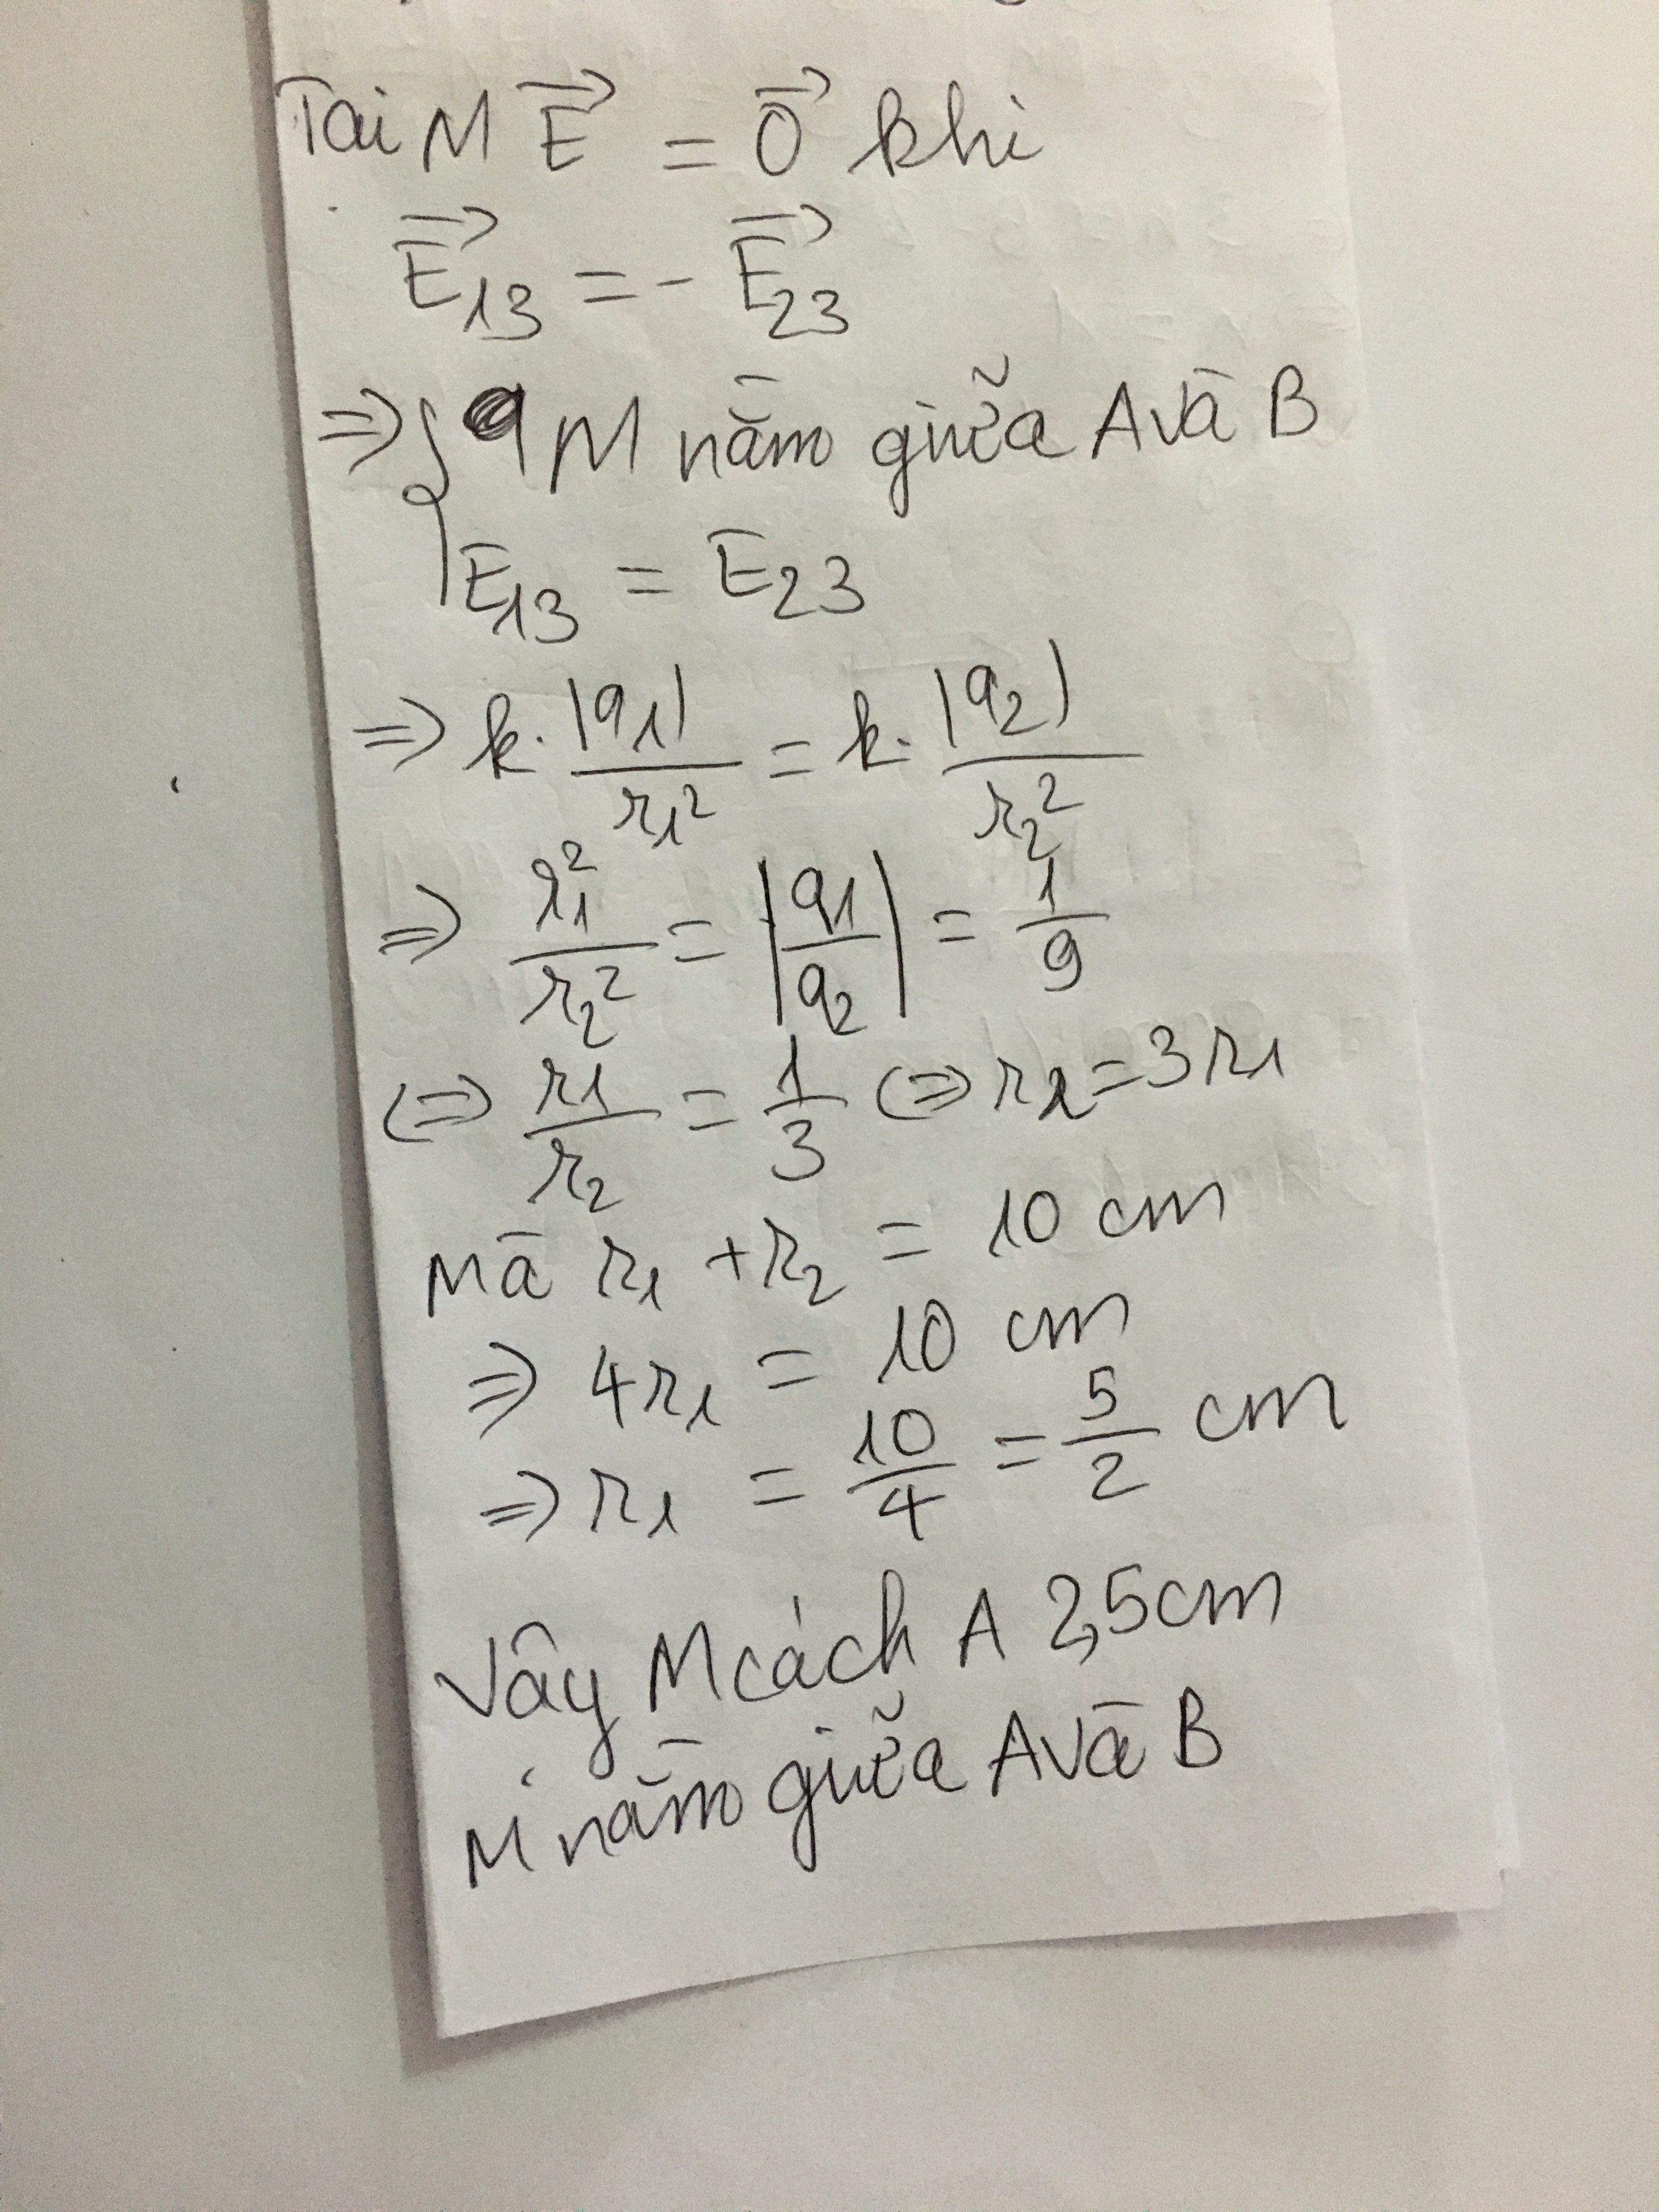 Tại M E⃗ = 0⃗ khi
E⃗₁₃ = - E⃗₂₃
⇒ { M nằm giữa A và B
E₁₃ = E₂₃
⇒ k. |q₁|/r₁² = k. |q₂|/r₂²
⇒ r₁²/r₂² = |q₁/q₂| = 1/9
⇔ r₁/r₂ = 1/3 ⇔ r₂ = 3r₁
Mà r₁ + r₂ = 10 cm
⇒ 4r₁ = 10 cm
⇒ r₁ = 10/4 = 5/2 cm
Vậy M cách A 2,5cm
M nằm giữa A và B